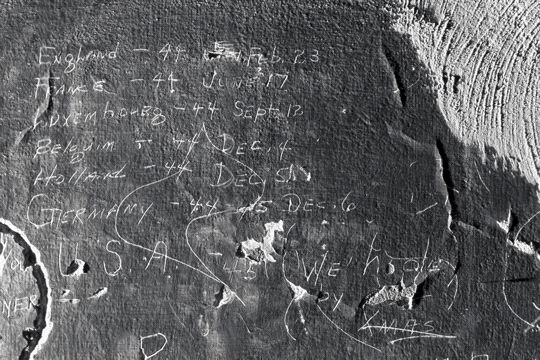 England - 44 Feb. 23
France - 44 June 17
Luxembourg - 44 Sept. 13
Belgium - 44 Dec. 4
Holland - 44 Dec. 5
Germany - 44 45 Dec. 6
U. S. A. We hope